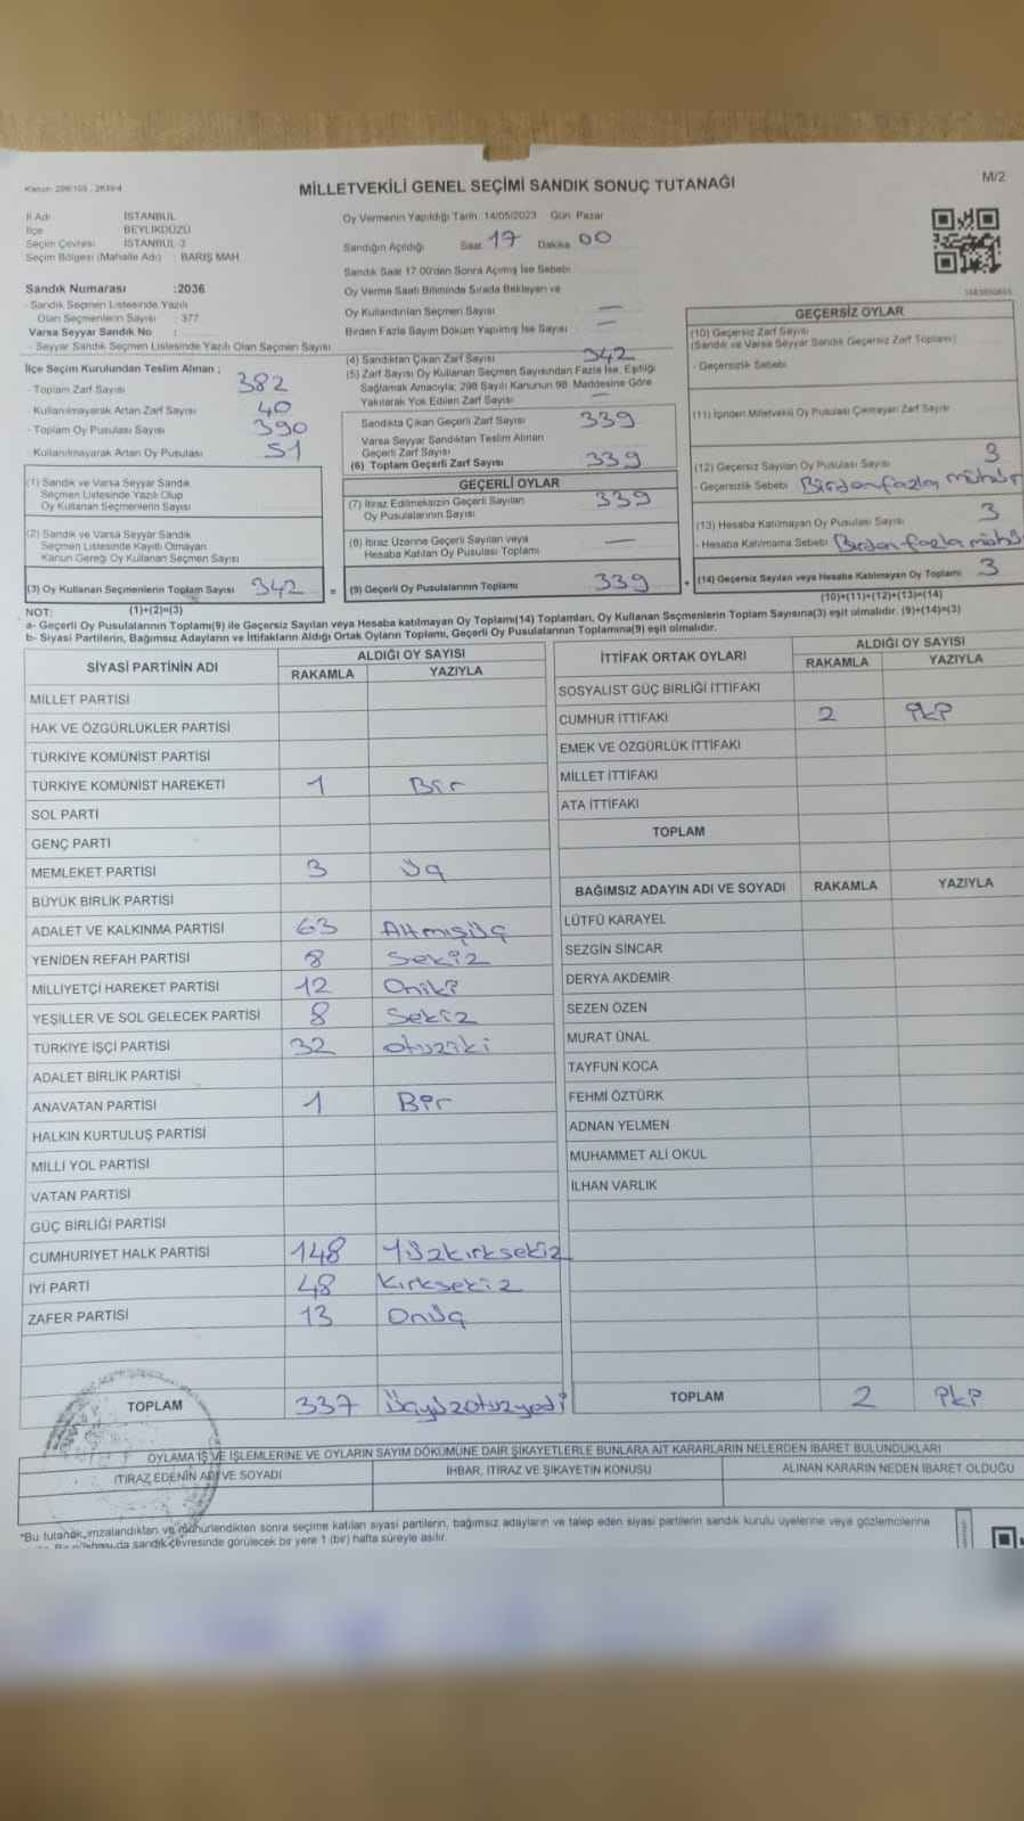 MİLLETVEKİLİ GENEL SEÇİMİ SANDIK SONUÇ TUTANAĞI
M/2
İl Adı İSTANBUL
İlçe BEYLİKDÜZÜ
Seçim Çevresi İSTANBUL-3
Seçim Bölgesi (Mahalle Adı) : BARIŞ MAH.
Sandık Numarası :2036
- Sandık Seçmen Listesinde Yazılı
Olan Seçmenlerin Sayısı : 377
Varsa Seyyar Sandık No :
- Seyyar Sandık Seçmen Listesinde Yazılı Olan Seçmen Sayısı
İlçe Seçim Kurulundan Teslim Alınan ;
- Toplam Zarf Sayısı 382
- Kullanılmayarak Artan Zarf Sayısı 40
- Toplam Oy Pusulası Sayısı 390
- Kullanılmayarak Artan Oy Pusulası 51
(1) Sandık ve Varsa Seyyar Sandık
Seçmen Listesinde Yazılı Olup
Oy Kullanan Seçmenlerin Sayısı
(2) Sandık ve Varsa Seyyar Sandık
Seçmen Listesinde Kayıtlı Olmayan
Kanun Gereği Oy Kullanan Seçmen Sayısı
(3) Oy Kullanan Seçmenlerin Toplam Sayısı 342
(1)+(2)=(3)
Oy Vermenin Yapıldığı Tarih 14/05/2023 Gün Pazar
Sandığın Açıldığı Saat 17 Dakika 00
Sandık Saat 17.00'den Sonra Açılmış İse Sebebi
Oy Verme Saati Bitiminde Sırada Bekleyen ve
Oy Kullandırılan Seçmen Sayısı —
Birden Fazla Sayım Döküm Yapılmış İse Sayısı —
(4) Sandıktan Çıkan Zarf Sayısı 342
(5) Zarf Sayısı Oy Kullanan Seçmen Sayısından Fazla İse, Eşitliği
Sağlamak Amacıyla; 298 Sayılı Kanunun 98. Maddesine Göre
Yakılarak Yok Edilen Zarf Sayısı —
Sandıkta Çıkan Geçerli Zarf Sayısı 339
Varsa Seyyar Sandıktan Teslim Alınan
Geçerli Zarf Sayısı
(6) Toplam Geçerli Zarf Sayısı 339
GEÇERLİ OYLAR
(7) İtiraz Edilmeksizin Geçerli Sayılan 339
Oy Pusulalarının Sayısı
(8) İtiraz Üzerine Geçerli Sayılan veya
Hesaba Katılan Oy Pusulası Toplamı —
= (9) Geçerli Oy Pusulalarının Toplamı 339
GEÇERSİZ OYLAR
(10) Geçersiz Zarf Sayısı
(Sandık ve Varsa Seyyar Sandık Geçersiz Zarf Toplamı)
- Geçersizlik Sebebi
(11) İçinden Milletvekili Oy Pusulası Çıkmayan Zarf Sayısı
(12) Geçersiz Sayılan Oy Pusulası Sayısı 3
- Geçersizlik Sebebi Birden fazla mühür
(13) Hesaba Katılmayan Oy Pusulası Sayısı 3
- Hesaba Katılmama Sebebi Birden fazla mühü
+ (14) Geçersiz Sayılan veya Hesaba Katılmayan Oy Toplamı 3
(10)+(11)+(12)+(13)=(14)
NOT:
a- Geçerli Oy Pusulalarının Toplamı(9) ile Geçersiz Sayılan veya Hesaba katılmayan Oy Toplamı(14) Toplamları, Oy Kullanan Seçmenlerin Toplam Sayısına(3) eşit olmalıdır. (9)+(14)=(3)
b- Siyasi Partilerin, Bağımsız Adayların ve İttifakların Aldığı Ortak Oyların Toplamı, Geçerli Oy Pusulalarının Toplamına(9) eşit olmalıdır.
SİYASİ PARTİNİN ADI ALDIĞI OY SAYISI
RAKAMLA YAZIYLA
MİLLET PARTİSİ
HAK VE ÖZGÜRLÜKLER PARTİSİ
TÜRKİYE KOMÜNİST PARTİSİ
TÜRKİYE KOMÜNİST HAREKETİ 1 Bir
SOL PARTİ
GENÇ PARTİ
MEMLEKET PARTİSİ 3 üç
BÜYÜK BİRLİK PARTİSİ
ADALET VE KALKINMA PARTİSİ 63 Altmışüç
YENİDEN REFAH PARTİSİ 8 Sekiz
MİLLİYETÇİ HAREKET PARTİSİ 12 Oniki
YEŞİLLER VE SOL GELECEK PARTİSİ 8 Sekiz
TÜRKİYE İŞÇİ PARTİSİ 32 otuziki
ADALET BİRLİK PARTİSİ
ANAVATAN PARTİSİ 1 Bir
HALKIN KURTULUŞ PARTİSİ
MİLLİ YOL PARTİSİ
VATAN PARTİSİ
GÜÇ BİRLİĞİ PARTİSİ
CUMHURİYET HALK PARTİSİ 148 Yüzkırksekiz
İYİ PARTİ 48 Kırksekiz
ZAFER PARTİSİ 13 Onüç
TOPLAM 337 Üçyüzotuzyedi
İTTİFAK ORTAK OYLARI ALDIĞI OY SAYISI
RAKAMLA YAZIYLA
SOSYALİST GÜÇ BİRLİĞİ İTTİFAKI
CUMHUR İTTİFAKI 2 iki
EMEK VE ÖZGÜRLÜK İTTİFAKI
MİLLET İTTİFAKI
ATA İTTİFAKI
TOPLAM
BAĞIMSIZ ADAYIN ADI VE SOYADI RAKAMLA YAZIYLA
LÜTFÜ KARAYEL
SEZGİN SİNCAR
DERYA AKDEMİR
SEZEN ÖZEN
MURAT ÜNAL
TAYFUN KOCA
FEHMİ ÖZTÜRK
ADNAN YELMEN
MUHAMMET ALİ OKUL
İLHAN VARLIK
TOPLAM 2 iki
OYLAMA İŞ VE İŞLEMLERİNE VE OYLARIN SAYIM DÖKÜMÜNE DAİR ŞİKAYETLERLE BUNLARA AİT KARARLARIN NELERDEN İBARET BULUNDUKLARI
İTİRAZ EDENİN ADI VE SOYADI İHBAR, İTİRAZ VE ŞİKAYETİN KONUSU ALINAN KARARIN NEDEN İBARET OLDUĞU
*Bu tutanak, imzalandıktan ve mühürlendikten sonra seçime katılan siyasi partilerin, bağımsız adayların ve talep eden siyasi partilerin sandık kurulu üyelerine veya gözlemcilerine
da sandık çevresinde görülecek bir yere 1 (bir) hafta süreyle asılır.